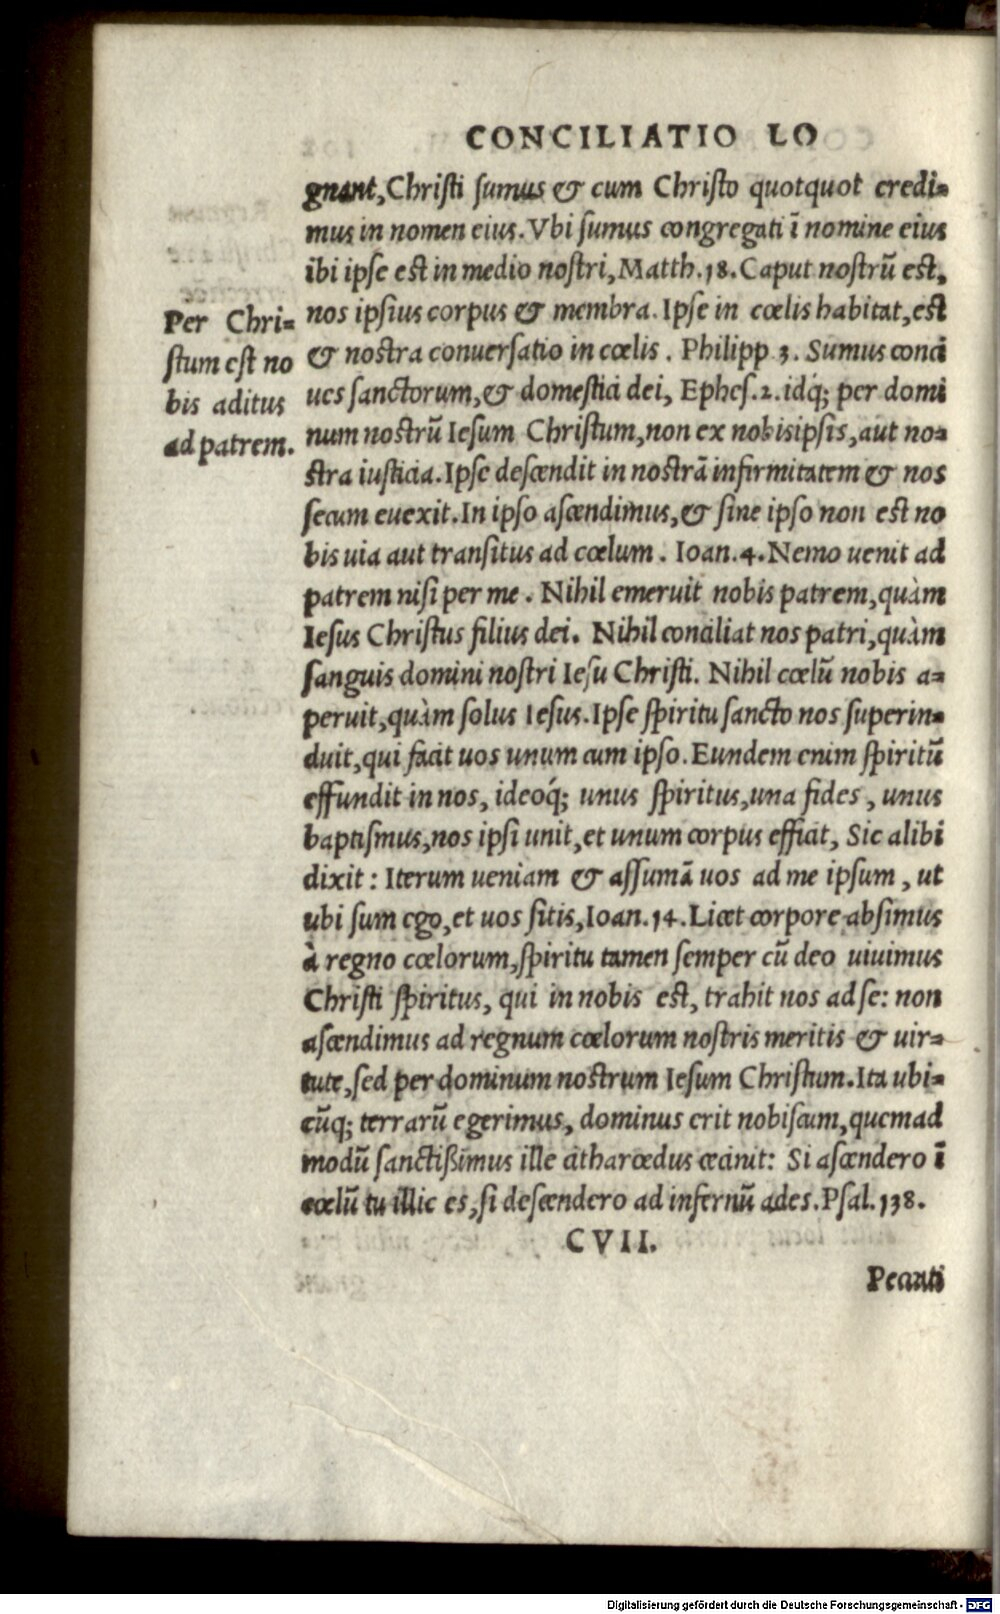 CONCILIATIO LO
gnant, Christi sumus & cum Christo quotquot credi=
mus in nomen eius. Vbi sumus congregati ī nomine eius
ibi ipse est in medio nostri, Matth.18. Caput nostrū est,
nos ipsius corpus & membra. Ipse in cœlis habitat, est
& nostra conuersatio in cœlis. Philipp 3. Sumus conci
ues sanctorum, & domestici dei, Ephes.2. idq́; per domi
num nostrū Iesum Christum, non ex nobisipsis, aut no=
stra iusticia. Ipse descendit in nostrā infirmitatem & nos
secum euexit. In ipso ascendimus, & sine ipso non est no
bis uia aut transitus ad cœlum. Ioan.4. Nemo uenit ad
patrem nisi per me. Nihil emeruit nobis patrem, quàm
Iesus Christus filius dei. Nihil conciliat nos patri, quàm
sanguis domini nostri Iesu Christi. Nihil cœlū nobis a=
peruit, quàm solus Iesus. Ipse spiritu sancto nos superin=
duit, qui facit uos unum cum ipso. Eundem enim spiritū
effundit in nos, ideoq́; unus spiritus, una fides, unus
baptismus, nos ipsi unit, et unum corpus efficit, Sic alibi
dixit: Iterum ueniam & assumā uos ad me ipsum, ut
ubi sum ego, et uos sitis, Ioan.14. Licet corpore absimus
à regno cœlorum, spiritu tamen semper cū deo uiuimus
Christi spiritus, qui in nobis est, trahit nos ad se: non
ascendimus ad regnum cœlorum nostris meritis & uir=
tute, sed per dominum nostrum Iesum Christum. Ita ubi=
cūq; terrarū egerimus, dominus erit nobiscum, quemad
modū sanctißimus ille citharœdus cecinit: Si ascendero ī
cœlū tu illic es, si descendero ad infernū ades. Psal.138.
CVII.
Peccati
Per Chri=
stum est no
bis aditus
ad patrem.
Digitalisierung gefördert durch die Deutsche Forschungsgemeinschaft - DFG